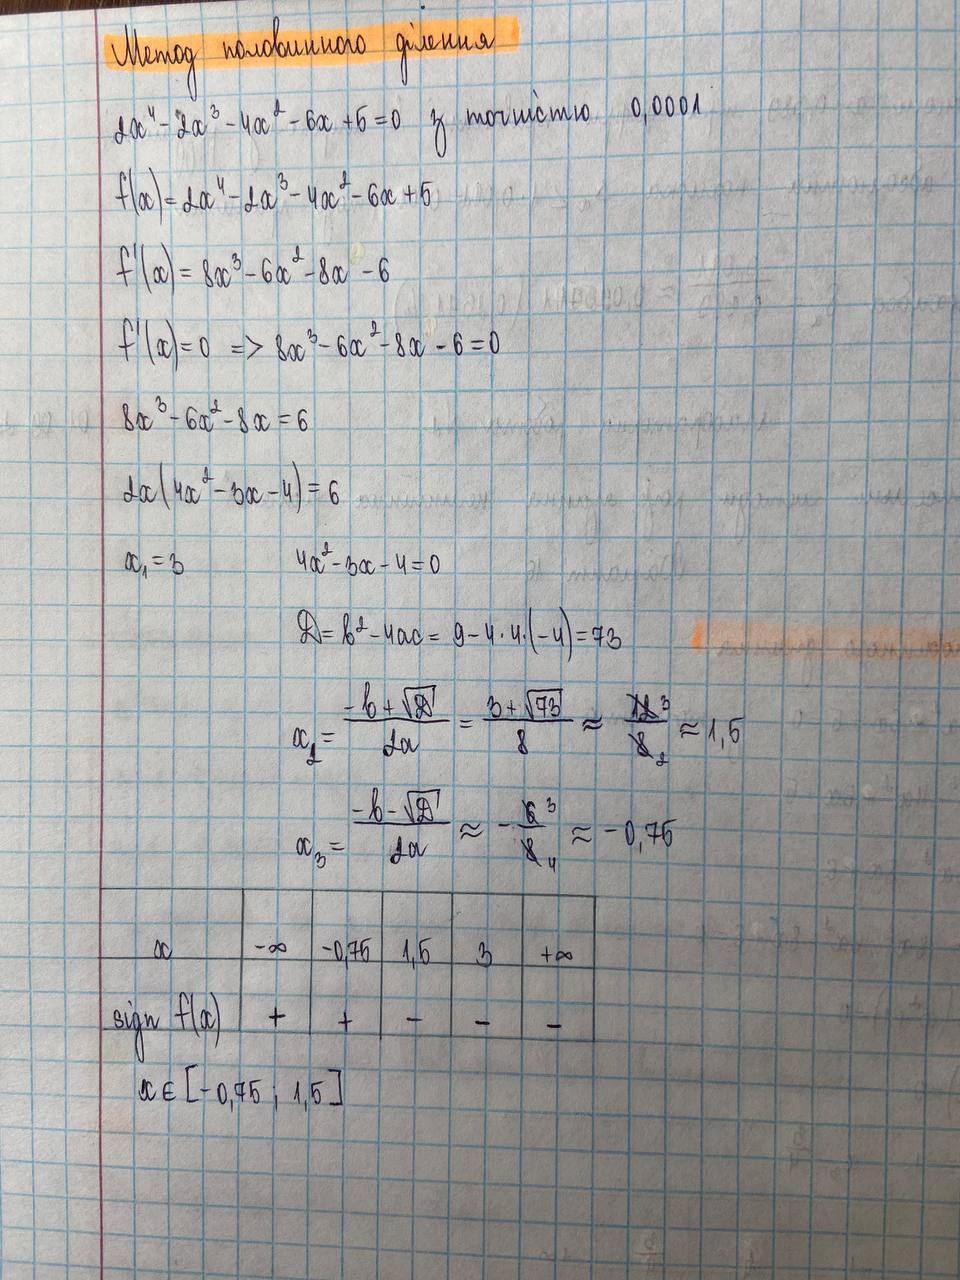 Метод половинного ділення
2x⁴ - 2x³ - 4x² - 6x + 5 = 0 з точністю 0,0001
f(x) = 2x⁴ - 2x³ - 4x² - 6x + 5
f'(x) = 8x³ - 6x² - 8x - 6
f'(x) = 0 => 8x³ - 6x² - 8x - 6 = 0
8x³ - 6x² - 8x = 6
2x(4x² - 3x - 4) = 6
x₁ = 3 4x² - 3x - 4 = 0
D = b² - 4ac = 9 - 4·4·(-4) = 73
x₂ = (-b + √D)/2a = (3 + √73)/8 ≈ 12/8 3/2 ≈ 1,5
x₃ = (-b - √D)/2a ≈ -6/8 3/4 ≈ -0,75
x -∞ -0,75 1,5 3 +∞
sign f(x) + + - - -
x ∈ [-0,75 ; 1,5]